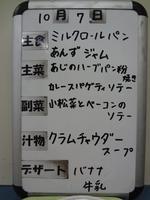 10月7日
主食 ミルクロールパン
あんずジャム
主菜 あじのハーブパン粉
焼き
カレースパゲティソテー
副菜 小松菜とベーコンの
ソテー
汁物 クラムチャウダー
スープ
デザート バナナ
牛乳